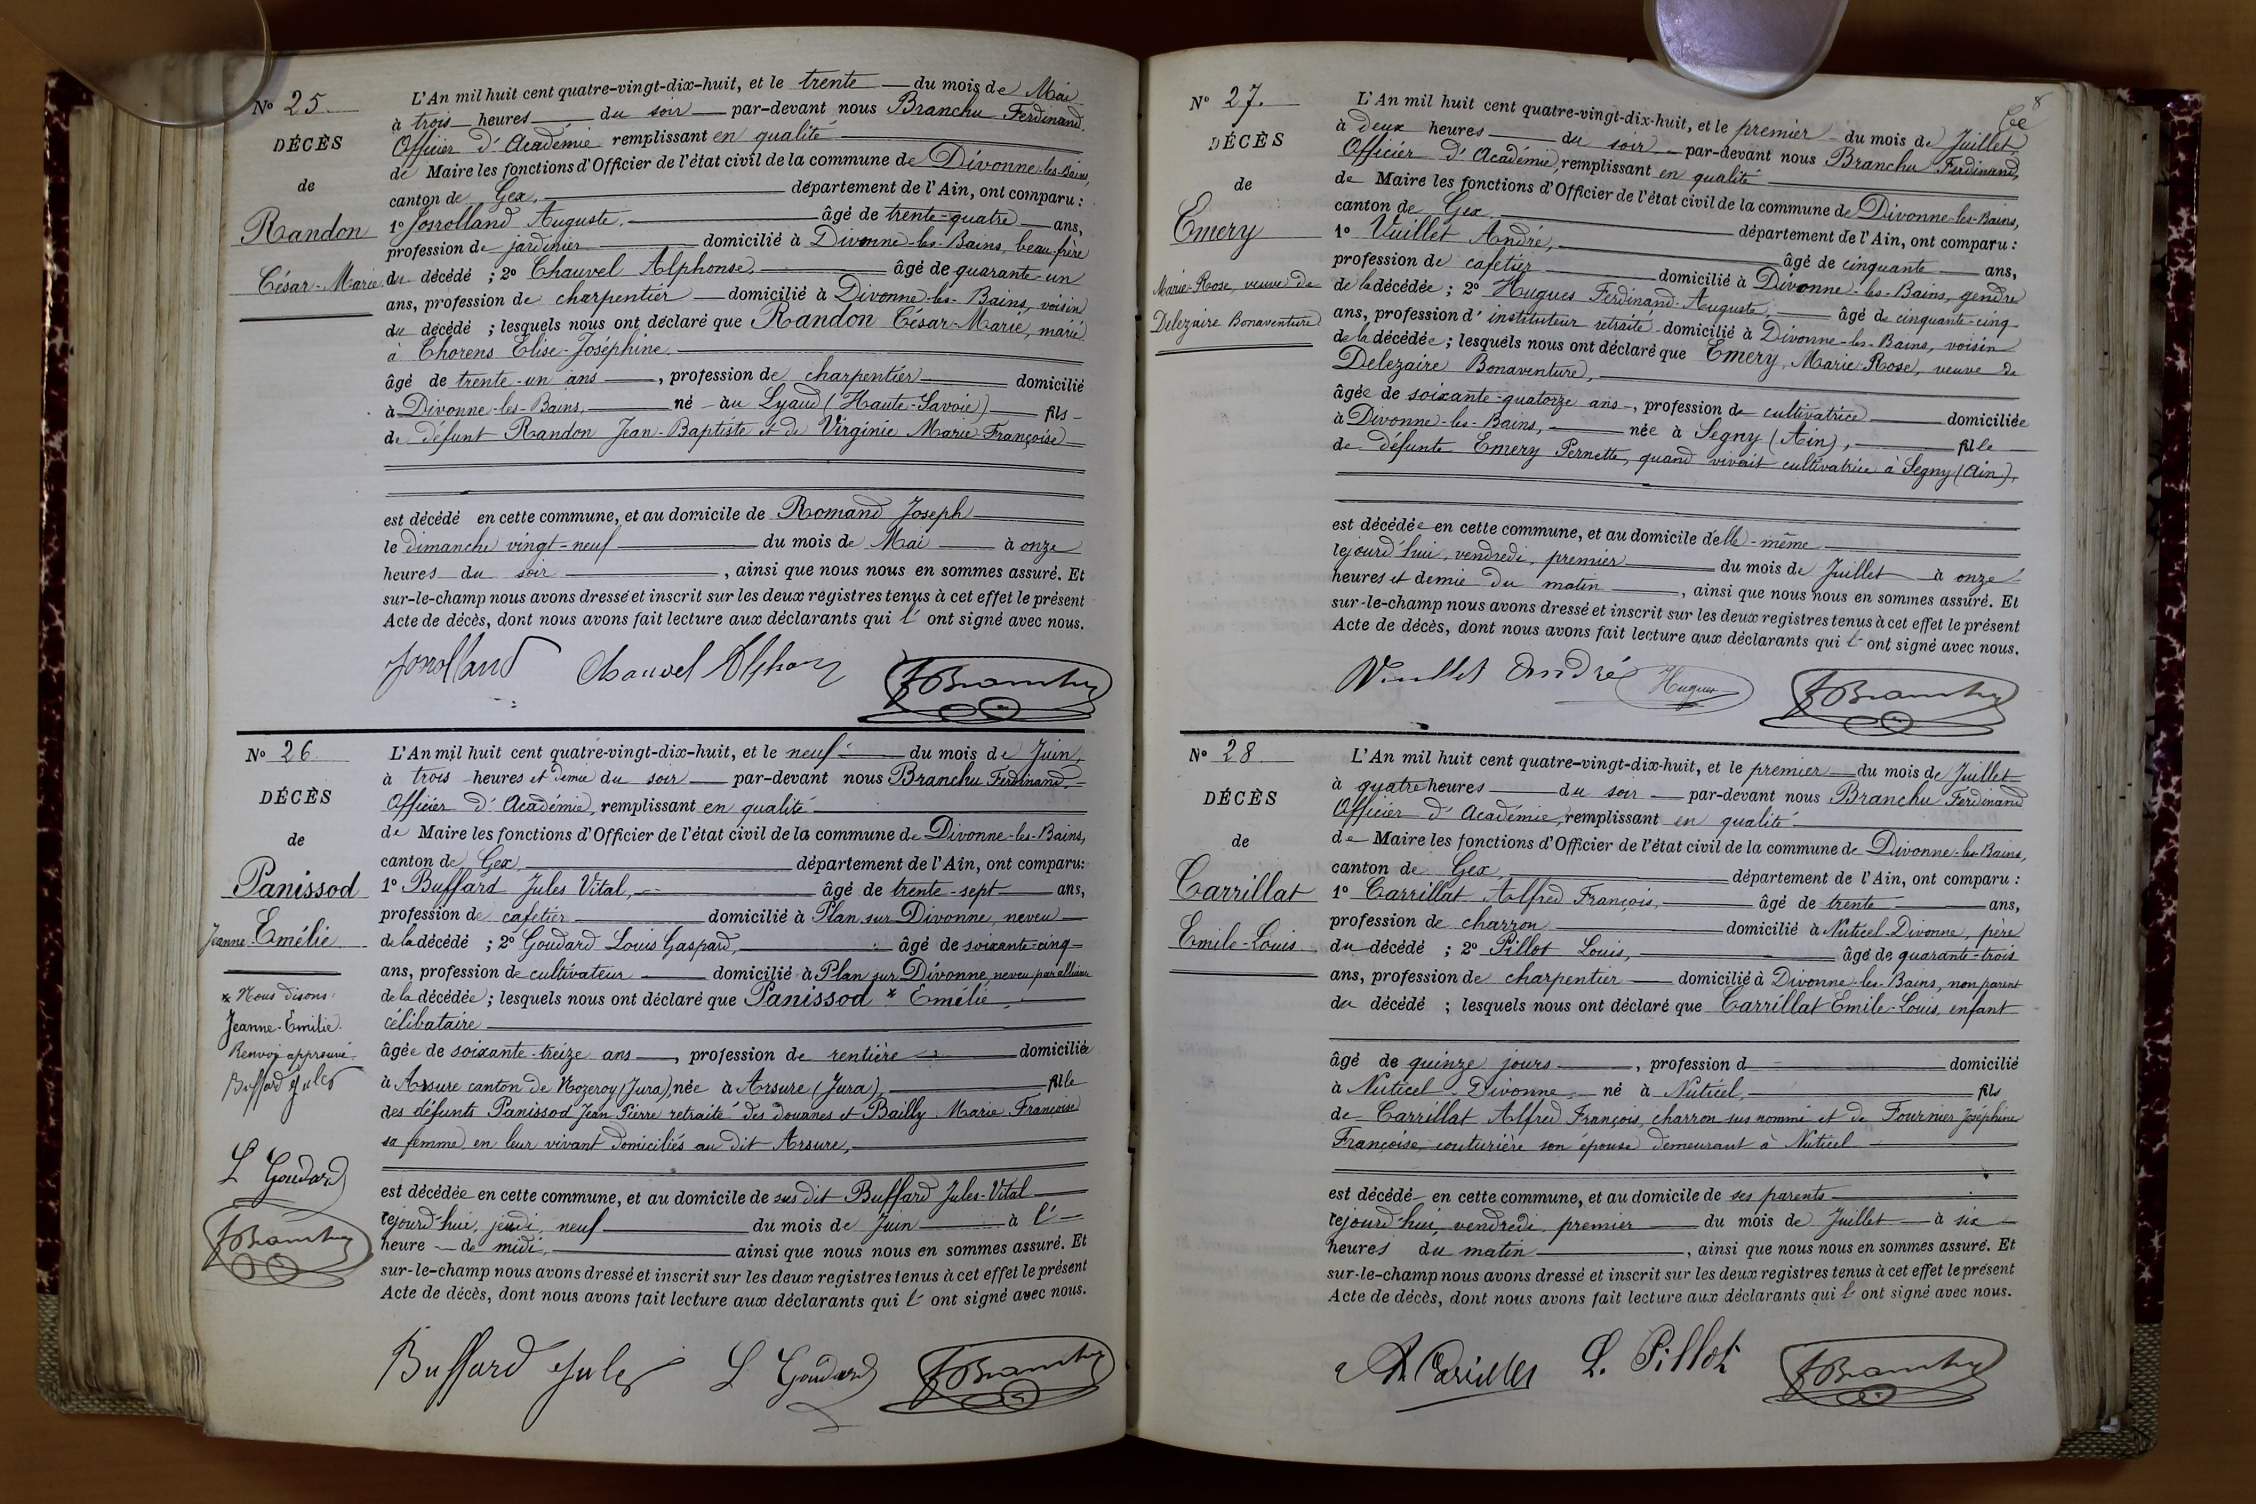 No 25
DÉCÈS
de
Randon
César-Marie
L'An mil huit cent quatre-vingt-dix-huit, et le trente du mois de Mai
à trois heures du soir par-devant nous Branchu Ferdinand,
Officier d'Académie remplissant en qualité
de Maire les fonctions d'Officier de l'état civil de la commune de Divonne-les-Bains,
canton de Gex, département de l'Ain, ont comparu :
1o Josrolland Auguste, âgé de trente-quatre ans,
profession de jardinier domicilié à Divonne-les-Bains, beau-frère
du décédé ; 2o Chauvel Alphonse, âgé de quarante-un
ans, profession de charpentier domicilié à Divonne-les-Bains, voisin
du décédé ; lesquels nous ont déclaré que Randon César-Marie, marié
à Chorens Elise-Joséphine,
âgé de trente-un ans, profession de charpentier domicilié
à Divonne-les-Bains, né au Lyaud (Haute-Savoie) fils
de défunt Randon Jean-Baptiste et de Virginie Marie Françoise
est décédé en cette commune, et au domicile de Romand Joseph
le dimanche vingt-neuf du mois de Mai à onze
heures du soir, ainsi que nous nous en sommes assuré. Et
sur-le-champ nous avons dressé et inscrit sur les deux registres tenus à cet effet le présent
Acte de décès, dont nous avons fait lecture aux déclarants qui l' ont signé avec nous.
Chauvel Alphonse FBranchu
No 26
DÉCÈS
de
Panissod
Jeanne-Emélie
* Nous disons :
Jeanne-Emilie.
Renvoi approuvé
Buffard Jules
L Goudard
FBranchu
L'An mil huit cent quatre-vingt-dix-huit, et le neuf du mois de Juin,
à trois heures et demie du soir par-devant nous Branchu Ferdinand,
Officier d'Académie, remplissant en qualité
de Maire les fonctions d'Officier de l'état civil de la commune de Divonne-les-Bains,
canton de Gex, département de l'Ain, ont comparu :
1o Buffard Jules Vital, âgé de trente-sept ans,
profession de cafetier domicilié à Plan sur Divonne, neveu
de la décédé ; 2o Goudard Louis Gaspard, âgé de soixante-cinq
ans, profession de cultivateur domicilié à Plan sur Divonne, neveu par alliance
de la décédée ; lesquels nous ont déclaré que Panissod * Emélie,
célibataire
âgée de soixante-treize ans, profession de rentière domiciliée
à Arsure canton de Nozeroy (Jura), née à Arsure (Jura), fille
des défunts Panissod Jean Pierre retraité des douanes et Bailly Marie Françoise
sa femme en leur vivant domiciliés au dit Arsure,
est décédée en cette commune, et au domicile de sus dit Buffard Jules-Vital
cejourd'hui, jeudi, neuf du mois de Juin à l'
heure de midi, ainsi que nous nous en sommes assuré. Et
sur-le-champ nous avons dressé et inscrit sur les deux registres tenus à cet effet le présent
Acte de décès, dont nous avons fait lecture aux déclarants qui l' ont signé avec nous.
Buffard Jules L Goudard FBranchu
8
No 27.
DÉCÈS
de
Emery
Marie-Rose, veuve de
Delezaire Bonaventure
L'An mil huit cent quatre-vingt-dix-huit, et le premier du mois de Juillet
à deux heures du soir par-devant nous Branchu Ferdinand,
Officier d'Académie, remplissant en qualité
de Maire les fonctions d'Officier de l'état civil de la commune de Divonne-les-Bains,
canton de Gex, département de l'Ain, ont comparu :
1o Vuillet André, âgé de cinquante ans,
profession de cafetier domicilié à Divonne-les-Bains, gendre
de la décédée ; 2o Hugues Ferdinand-Auguste, âgé de cinquante-cinq
ans, profession d'instituteur retraité domicilié à Divonne-les-Bains, voisin
de la décédée ; lesquels nous ont déclaré que Emery, Marie-Rose, veuve de
Delezaire Bonaventure,
âgée de soixante-quatorze ans, profession de cultivatrice domiciliée
à Divonne-les-Bains, née à Segny (Ain), fille
de défunte Emery Pernette, quand vivait cultivatrice à Segny (Ain),
est décédée en cette commune, et au domicile d'elle-même
cejourd'hui, vendredi, premier du mois de Juillet à onze
heures et demie du matin, ainsi que nous nous en sommes assuré. Et
sur-le-champ nous avons dressé et inscrit sur les deux registres tenus à cet effet le présent
Acte de décès, dont nous avons fait lecture aux déclarants qui l' ont signé avec nous.
Vuillet André Hugues FBranchu
No 28
DÉCÈS
de
Carrillat
Emile-Louis
L'An mil huit cent quatre-vingt-dix-huit, et le premier du mois de Juillet
à quatre heures du soir par-devant nous Branchu Ferdinand
Officier d'Académie, remplissant en qualité
de Maire les fonctions d'Officier de l'état civil de la commune de Divonne-les-Bains,
canton de Gex, département de l'Ain, ont comparu :
1o Carrillat Alfred François, âgé de trente ans,
profession de charron domicilié à Naticel-Divonne, père
du décédé ; 2o Pillot Louis, âgé de quarante-trois
ans, profession de charpentier domicilié à Divonne-les-Bains, non parent
du décédé ; lesquels nous ont déclaré que Carrillat Emile-Louis, enfant
âgé de quinze jours, profession d domicilié
à Naticel-Divonne, né à Naticel, fils
de Carrillat Alfred François, charron sus nommé et de Fournier Joséphine
Françoise, couturière son épouse demeurant à Naticel
est décédé en cette commune, et au domicile de ses parents
cejourd'hui, vendredi, premier du mois de Juillet à six
heures du matin, ainsi que nous nous en sommes assuré. Et
sur-le-champ nous avons dressé et inscrit sur les deux registres tenus à cet effet le présent
Acte de décès, dont nous avons fait lecture aux déclarants qui l' ont signé avec nous.
L. Pillot FBranchu